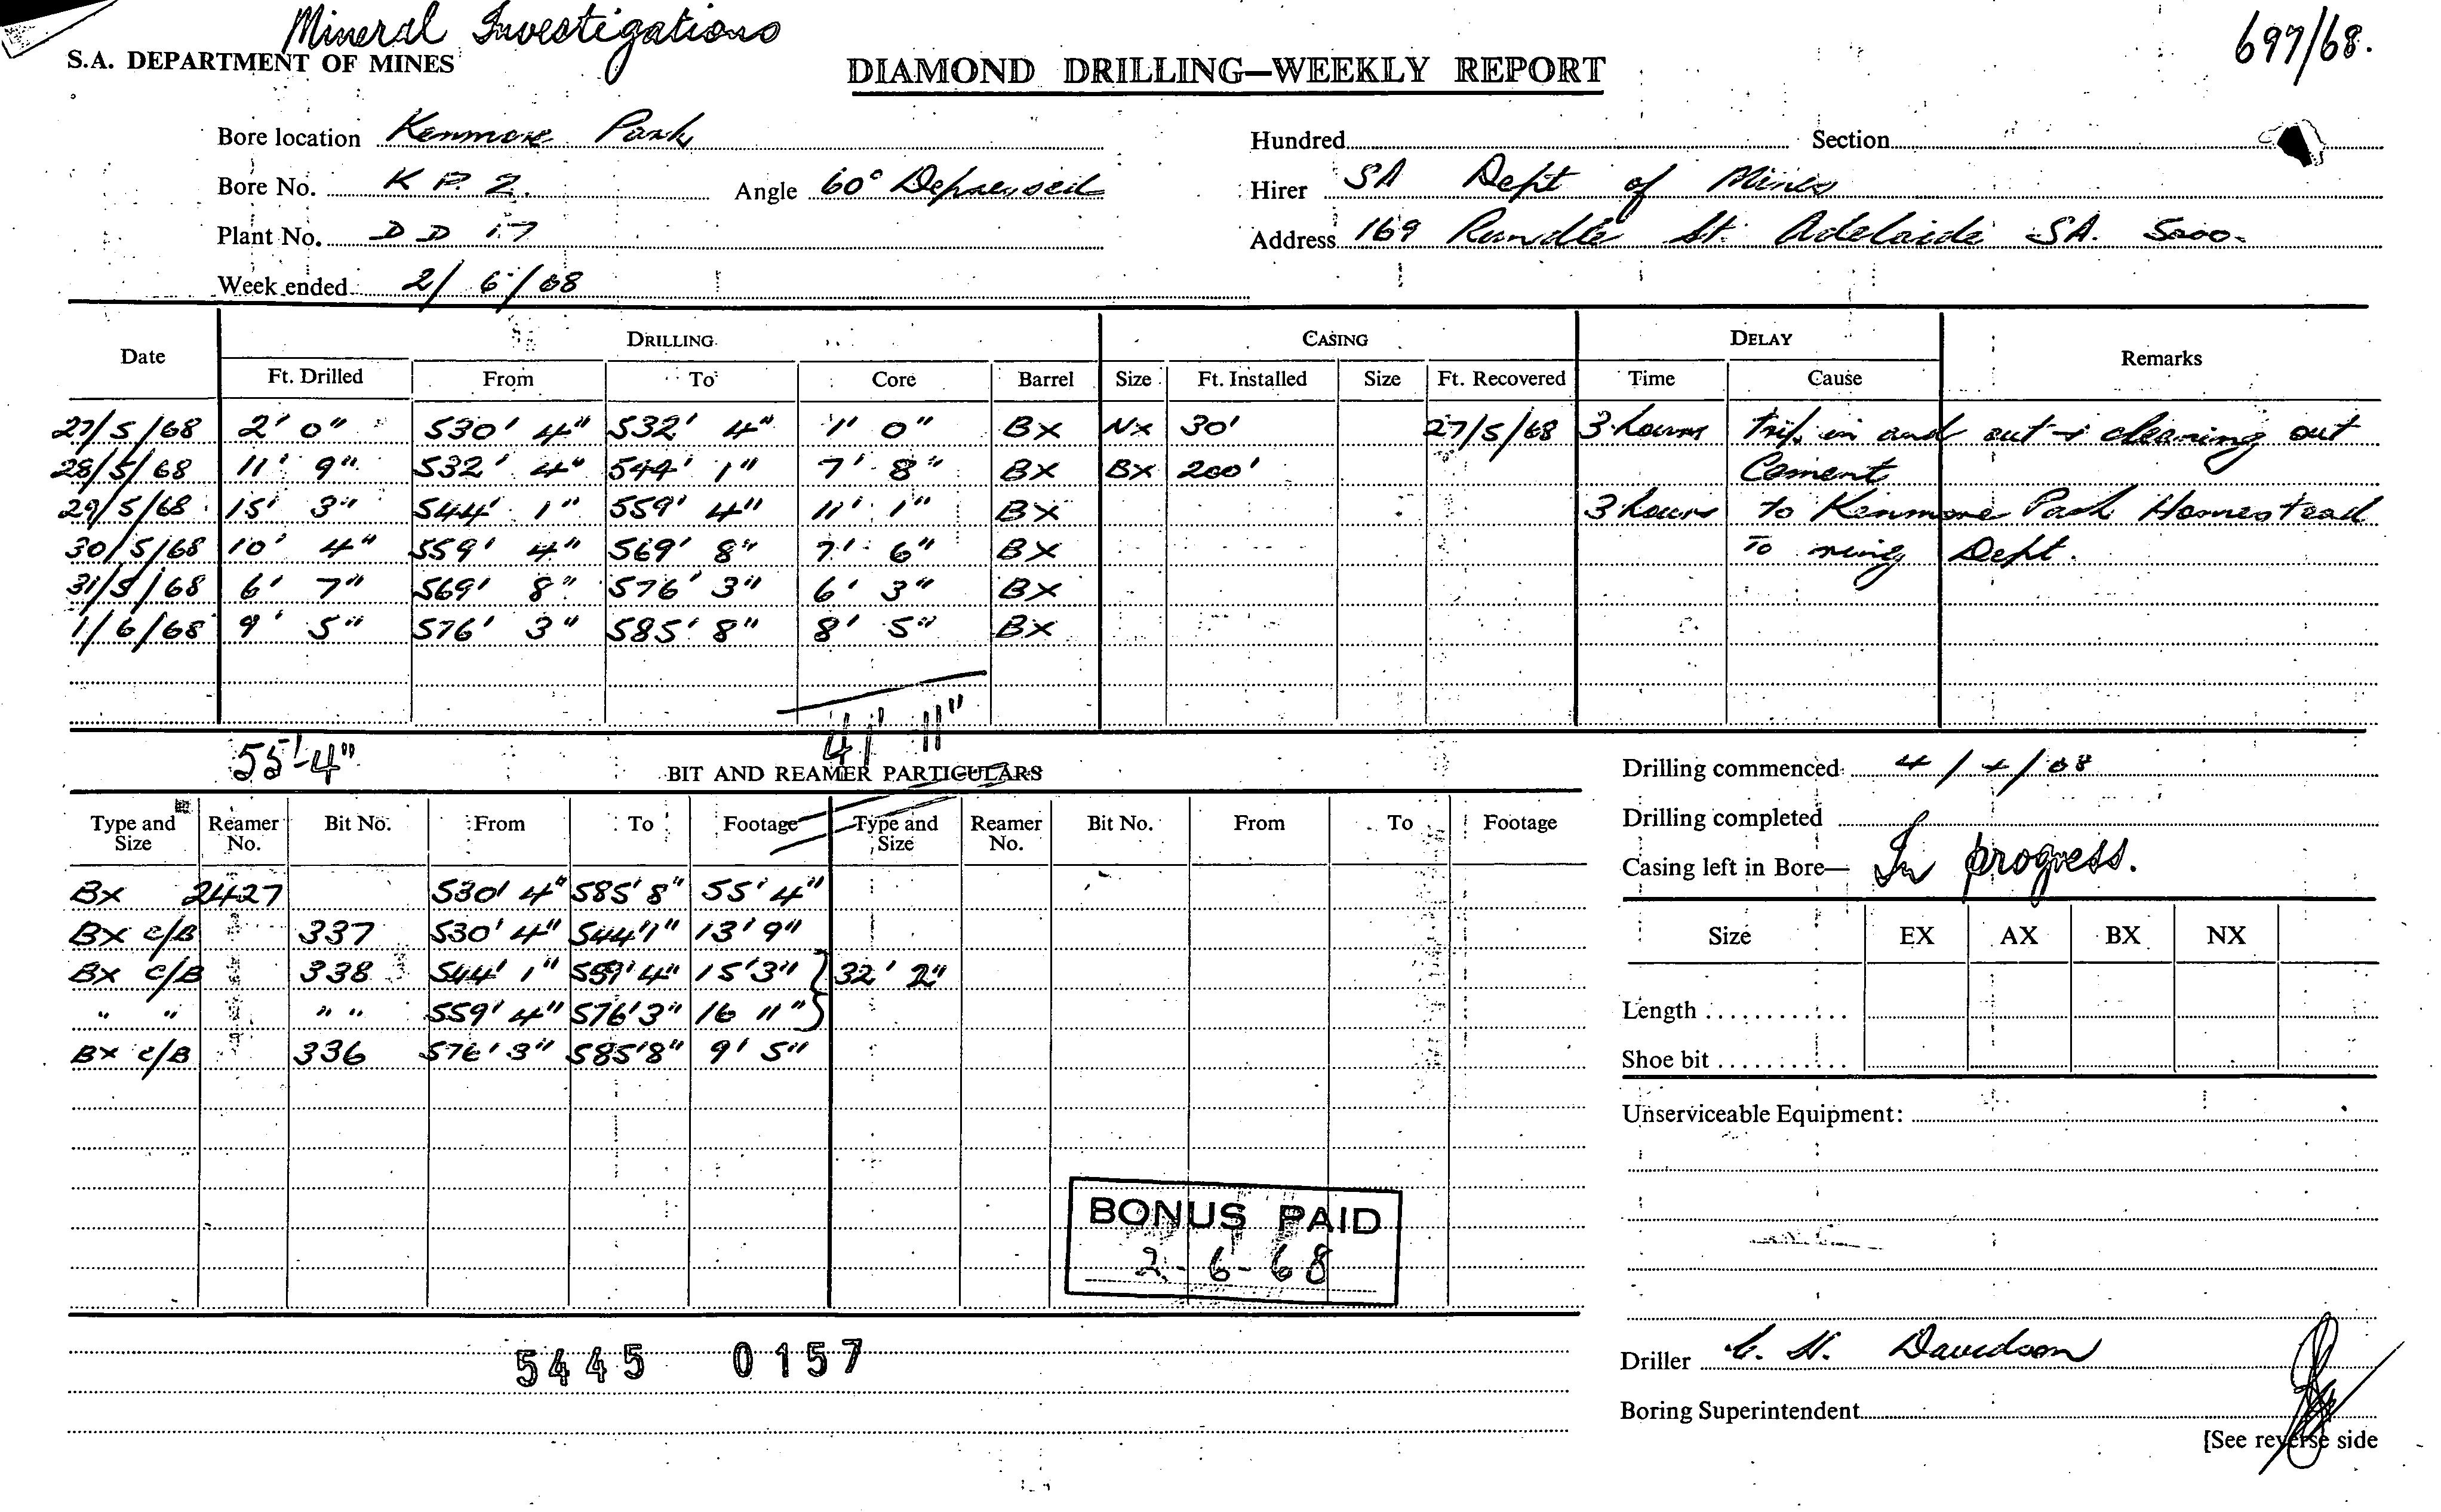 Mineral Investigations
697/68.
S.A. DEPARTMENT OF MINES
DIAMOND DRILLING—WEEKLY REPORT
Bore location Kenmore Park
Hundred Section
Bore No. K P. 2. Angle 60° Depressed
Hirer SA Dept of Mines
Plant No. D D 17
Address 169 Rundle St. Adelaide SA. 5000.
Week ended 2/6/68
Date DRILLING CASING DELAY Remarks
Ft. Drilled From To Core Barrel Size Ft. Installed Size Ft. Recovered Time Cause
27/5/68 2' 0" 530' 4" 532' 4" 1' 0" BX NX 30' 27/5/68 3 hours trip in and out + cleaning out
28/5/68 11' 9" 532' 4" 544' 1" 7' 8" BX BX 200' Cement
29/5/68 15' 3" 544' 1" 559' 4" 11' 1" BX 3 hours to Kenmore Park Homestead
30/5/68 10' 4" 559' 4" 569' 8" 7' 6" BX To ring Dept.
31/5/68 6' 7" 569' 8" 576' 3" 6' 3" BX
1/6/68 9' 5" 576' 3" 585' 8" 8' 5" BX
55'-4" 41' 11"
BIT AND REAMER PARTICULARS
Drilling commenced 4/4/68
Type and Size Reamer No. Bit No. From To Footage Type and Size Reamer No. Bit No. From To Footage
Drilling completed
Casing left in Bore— In progress.
BX 2427 530' 4" 585' 8" 55' 4"
BX C/B 337 530' 4" 544' 1" 13' 9"
Size EX AX BX NX
BX C/B 338 544' 1" 559' 4" 15' 3" 32' 2"
" " " " 559' 4" 576' 3" 16 11"
Length ............
BX C/B 336 576' 3" 585' 8" 9' 5"
Shoe bit ...........
Unserviceable Equipment:
BONUS PAID
2-6-68
5445 0157
Driller C. H. Davidson
Boring Superintendent
[See reverse side